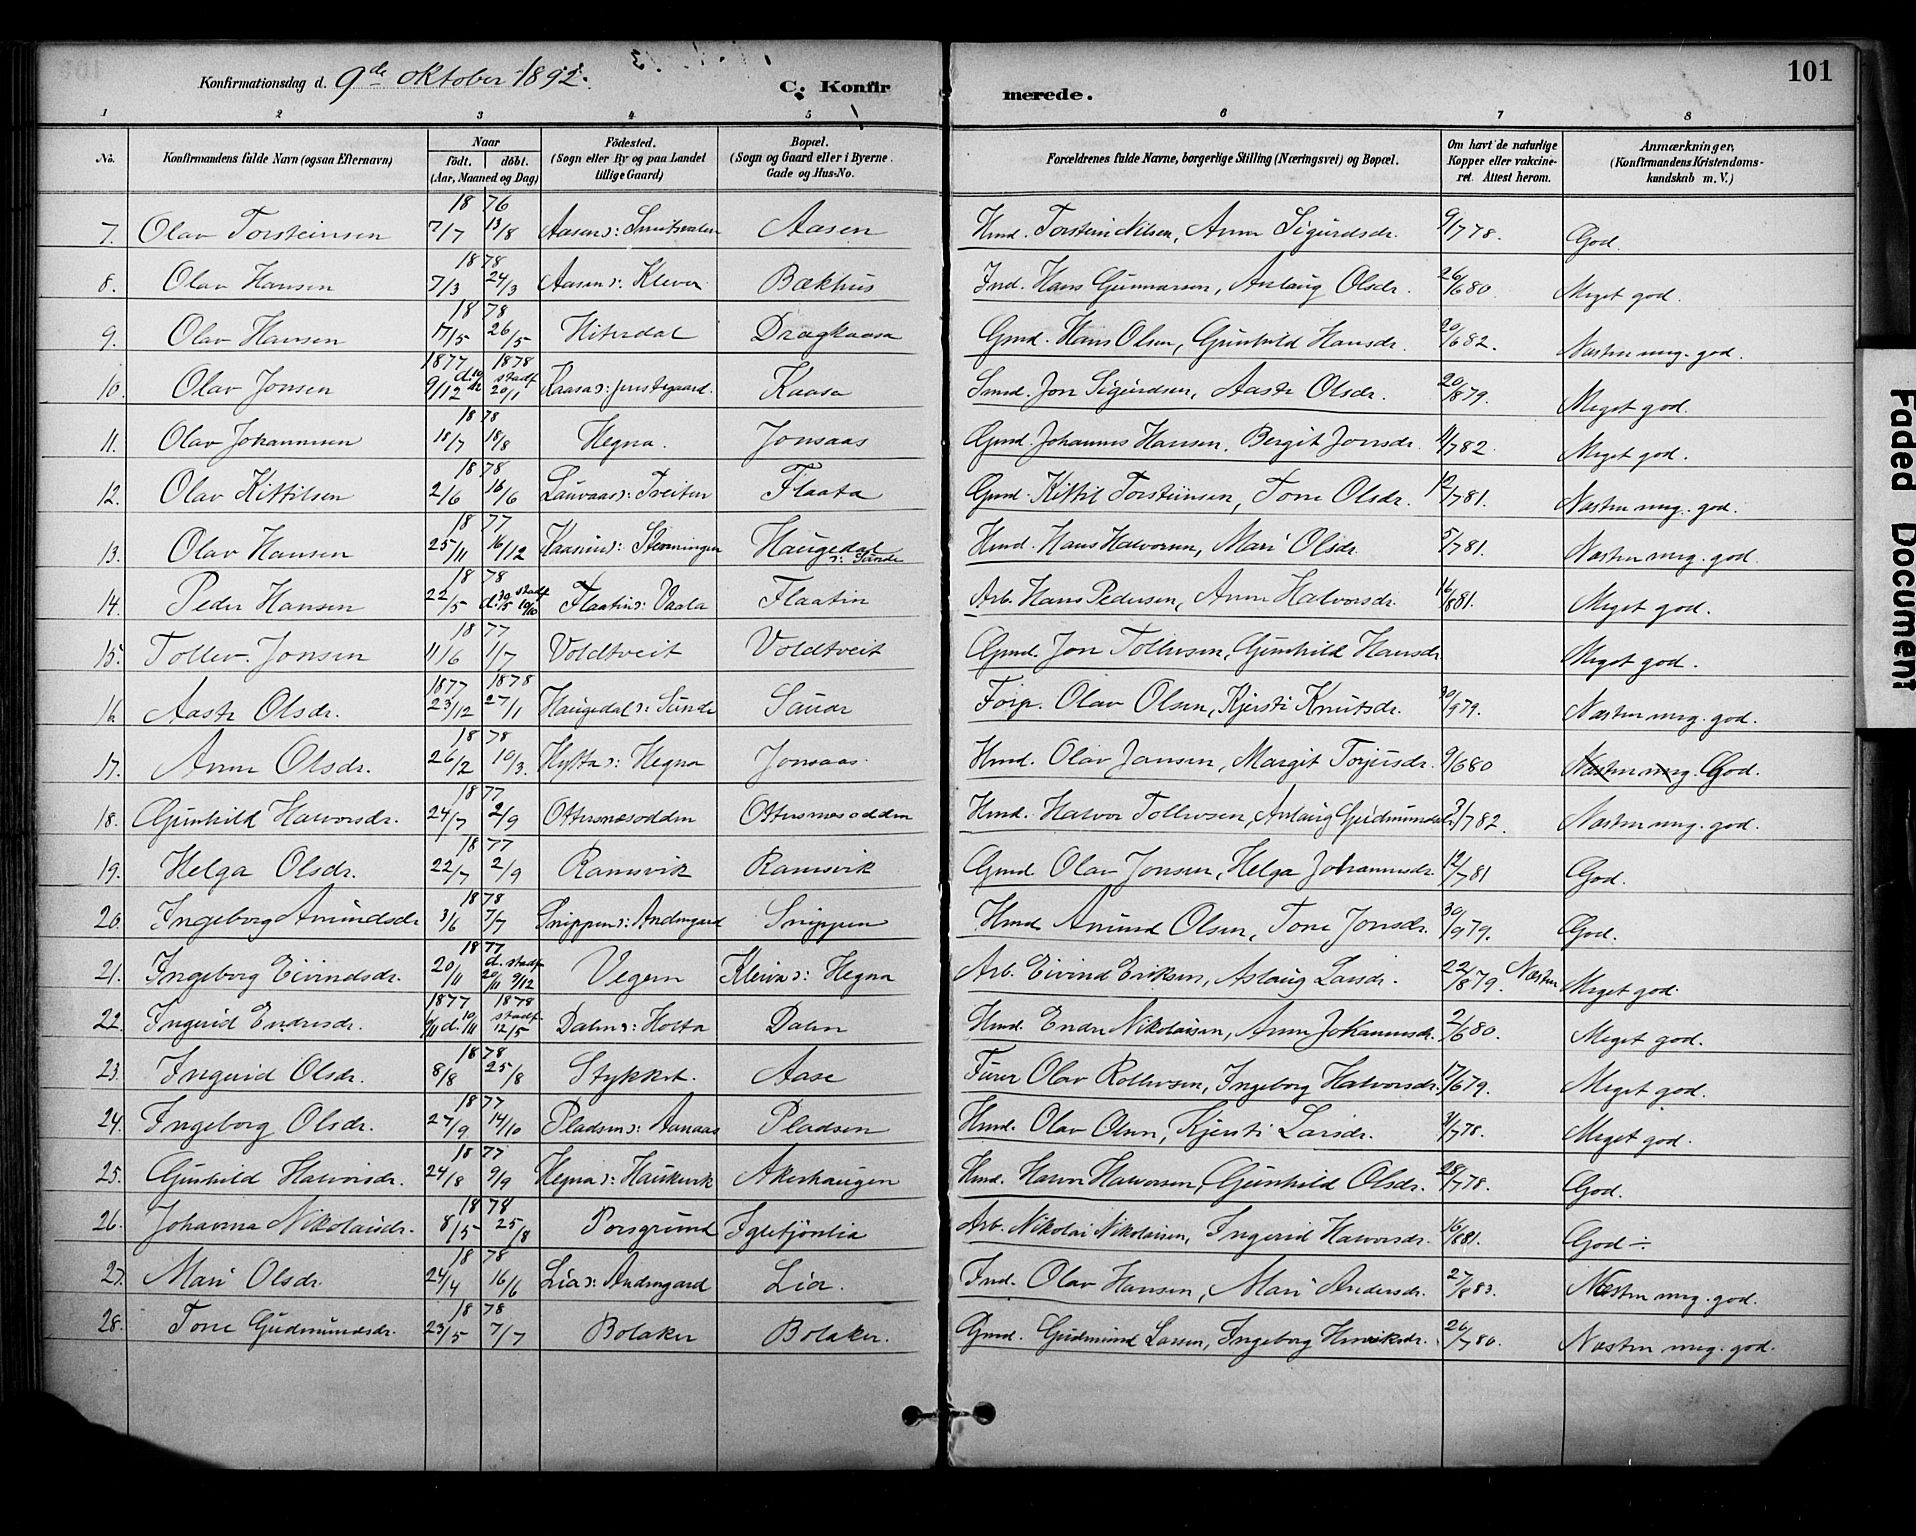 Konfirmationsdag d. 9de Oktober 1892.
C. Konfirmerede.
101
1 2 3 4 5 6 7 8
No. | Konfirmandens fulde Navn (ogsaa Efternavn) | Naar födt. | döbt. (Aar, Maaned og Dag) | Födested. (Sogn eller By og paa Landet tillige Gaard) | Bopæl. (Sogn og Gaard eller i Byerne Gade og Hus-No. | Forældrenes fulde Navne, borgerlige Stilling (Næringsvei) og Bopæl. | Om havt de naturlige Kopper eller vakcineret. Attest herom. | Anmærkninger, (Konfirmandens Kristendomskundskab m. V.)
7. Olav Torsteinsen 1876 7/7 13/8 Aasen Aasen Hmd. Torstein Nilsen, Anne Sigurdsdr. 9/7 78. God.
8. Olav Hansen 1878 7/3 24/3 Aasen ɔ: Kleven Bækhus Ind. Hans Gunnarsen, Aslaug Olsdr. 26/6 80. Meget god.
9. Olav Hansen 1878 17/5 26/5 Hiterdal Dragkaasa Gmd. Hans Olsen, Gunhild Hansdr. 20/6 82. Næsten meg. god.
10. Olav Jonsen 1877 1878 9/12 d. 19/12 stadf. 20/1 Kaasa ɔ: prestegaard. Kaasa Smd. Jon Sigurdsen, Aaste Olsdr. 20/8 79. Meget god.
11. Olav Johannesen 1878 18/7 18/8 Hegna. Jonsaas Gmd. Johannes Hansen, Bergit Jonsdr. 11/7 82. Meget god.
12. Olav Kittilsen 1878 2/6 16/6 Lauvaas ɔ: Tveiten Flaata Gmd. Kittil Torsteinsen, Tone Olsdr. 12/7 81. Næsten meg. god.
13. Olav Hansen 1877 25/11 16/12 Kaasine ɔ: Haugedal ɔ: Sunde Hmd. Hans Halvorsen, Mari Olsdr. 5/7 81. Næsten meg. god.
14. Peder Hansen 1878 22/5 d. 30/5 stadf. 10/10 Flaatin ɔ: Vaala Flaatin Arb. Hans Pedersen, Anne Halvorsdr. 16/8 81. Meget god.
15. Tollev Jonsen 1877 11/6 1/7 Voldtveit Voldtveit Gmd. Jon Tollevsen, Gunhild Hansdr Meget god.
16. Aaste Olsdr. 1877 1878 23/12 27/1 Haugedal ɔ: Sunde Sauar Forp. Olav Olsen, Kjersti Knutsdr. 30/9 79. Næsten meg. god.
17. Anne Olsdr. 1878 26/2 10/3. Hytta ɔ: Hegna Jonsaas Hmd. Olav Jansen, Margit Torjusdr. 9/6 80 Næsten meg. God.
18. Gunhild Halvorsdr. 1877 24/7 2/9 Ottersnesodden Ottersnesodden Hmd. Halvor Tollevsen, Aslaug Gudmundsdr. 3/7 82. Næsten meg. god.
19. Helga Olsdr. 1877 22/7 2/9 Ramsvik Ramsvik Gmd. Olav Jonsen, Helga Johannesdr. 12/7 81 God.
20. Ingeborg Amundsdr 1878 3/6 7/7 Snippen ɔ: Andengaard Snippen Hmd. Amund Olsen, Tone Jonsdr. 30/9 79. God.
21. Ingeborg Eivindsdr. 1877 20/11 d. 20/11 stadf. 9/12 Vegem Kleiva ɔ: Hegna Arb. Eivind Eriksen, Aslaug Larsdr. 22/8 79. Næsten Meget god.
22. Ingerid Endresdr. 1877 1878 9/11 d. 10/11 stadf. 12/5 Dalen ɔ: Holta Dalen Hmd. Endre Nikolaisen, Anne Johannesdr. 2/6 80. Meget god.
23. Ingerid Olsdr. 1878 8/8 25/8 Stykket. Aase Furer Olav Rollevsen, Ingeborg Halvorsdr. 17/6 79. Meget god.
24. Ingeborg Olsdr. 1877 27/9 14/10 Pladsen ɔ: Aanaas Pladsen Hmd. Olav Olsen, Kjersti Larsdr. 3/7 78. Meget god.
25. Gunhild Halvorsdr. 1877 24/8 9/9 Hegna ɔ: Haukevik Akerhaugen Hmd. Halvor Halvorsen, Gunhild Olsdr. 28/7 78. God.
26. Johanna Nikolaidr. 1878 8/5 25/8 Porsgrund Igletjönlia Arb. Nikolai Nikolaisen, Ingerid Halvorsdr. 16/8 81. God ÷.
27. Mari Olsdr. 1878 24/4 16/6 Lia ɔ: Andengaard Lia. Ind. Olav Hansen, Mari Andersdr. 27/8 83. Næsten meg. god.
28. Tone Gudmundsdr. 1878 23/5 7/7 Bolaker Bolaker. Gmd. Gudmund Larsen, Ingeborg Henriksdr. 26/7 80. Næsten meg. god.
Faded Document